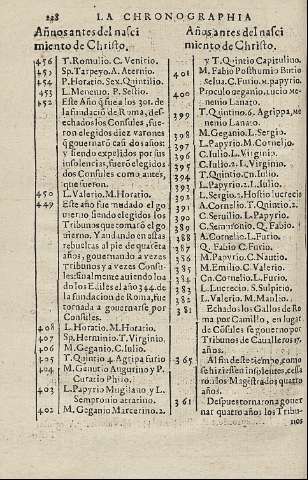 238 LA CHRONOGRAPHIA
Añños antes del nasci
miento de Christo.
456 T. Romulio. C. Venirio.
455 Sp. Tarpeyo. A. Aternio.
454 P. Horatio. Sex. Quintilio.
453 L. Menenio. P. Sestio.
452 Este Año q̃ fue a los 301. de
la fundació de Roma, des-
echados los Consules, fue-
ron elegidos diez varones
q̃ gouernarõ casi dos años:
y siendo expelidos por sus
insolencias, fuerõ elegidos
dos Consules como antes,
que fueron.
450 L. Valerio. M. Horatio.
449 Este año fue mudado el go
uierno siendo elegidos los
Tribunos que tomarõ el go
uierno. Y andando en estas
rebueltas al pie de quarẽta
años, gouernando a vezes
Tribunos y a vezes Consu-
les: finalmente auiendo los
dos los Ediles el año 344. de
la fundacion de Roma, fue
tornada a gouernarse por
Consules.
408 L. Horatio. M. Horatio.
407 Sp. Herminio. T. Virginio.
406 M. Geganio. C. Iulio.
405 T. Quintio 4. Agripa furio
404 M. Genutio Augurino y P.
Curatio Philo.
403 L. Papyrio Mugilano y L.
Sempronio atratino.
402 M. Geganio Marcerino. 2.
Años antes del nasci
miento de Christo.
y T. Quintio Capitulino.
401 M. Fabio Posthumio Butio
selua. C. Furio. M. papyrio.
400 Proculo geganio. lucio Me-
nenio Lanato.
399 T. Quintio. 6. Agrippa, Me
nenio Lanato.
398 M. Geganio. L. Sergio.
397 L. Papyrio. M. Cornelio.
396 C. Iulio. L. Virginio.
395 C. Iulio. 2. L. Virginio.
394 T. Quintio. Cn. Iulio.
393 L. Papyrio. 2. L. Iulio.
392 L. Sergio. 2. Hostio lucrecio
391 A. Cornelio. T. Quintio. 2.
390 C. Seruilio. L. Papyrio.
389 C. Sempronio. Q. Fabio.
388 A. Cornelio. L. Furio.
387 Q. Fabio C. Furio.
386 M. Papyrio. C. Nautio.
385 M. Emilio. C. Valerio.
384 Cn. Cornelio. L. Furio.
383 L. Lucrecio. S. Sulpitio.
382 L. Valerio. M. Manlio.
381 Echados los Gallos de Ro
ma por Camillo, en lugar
de Cõsules se gouerno por
Tribunos de Caualleros 17.
años.
365 Al fin deste tiempo, como
se hiziessen insolentes, cessa
rõ los Magistrados quatro
años.
361 Despues tornaron a gouer
nar quatro años los Tribu-
nos